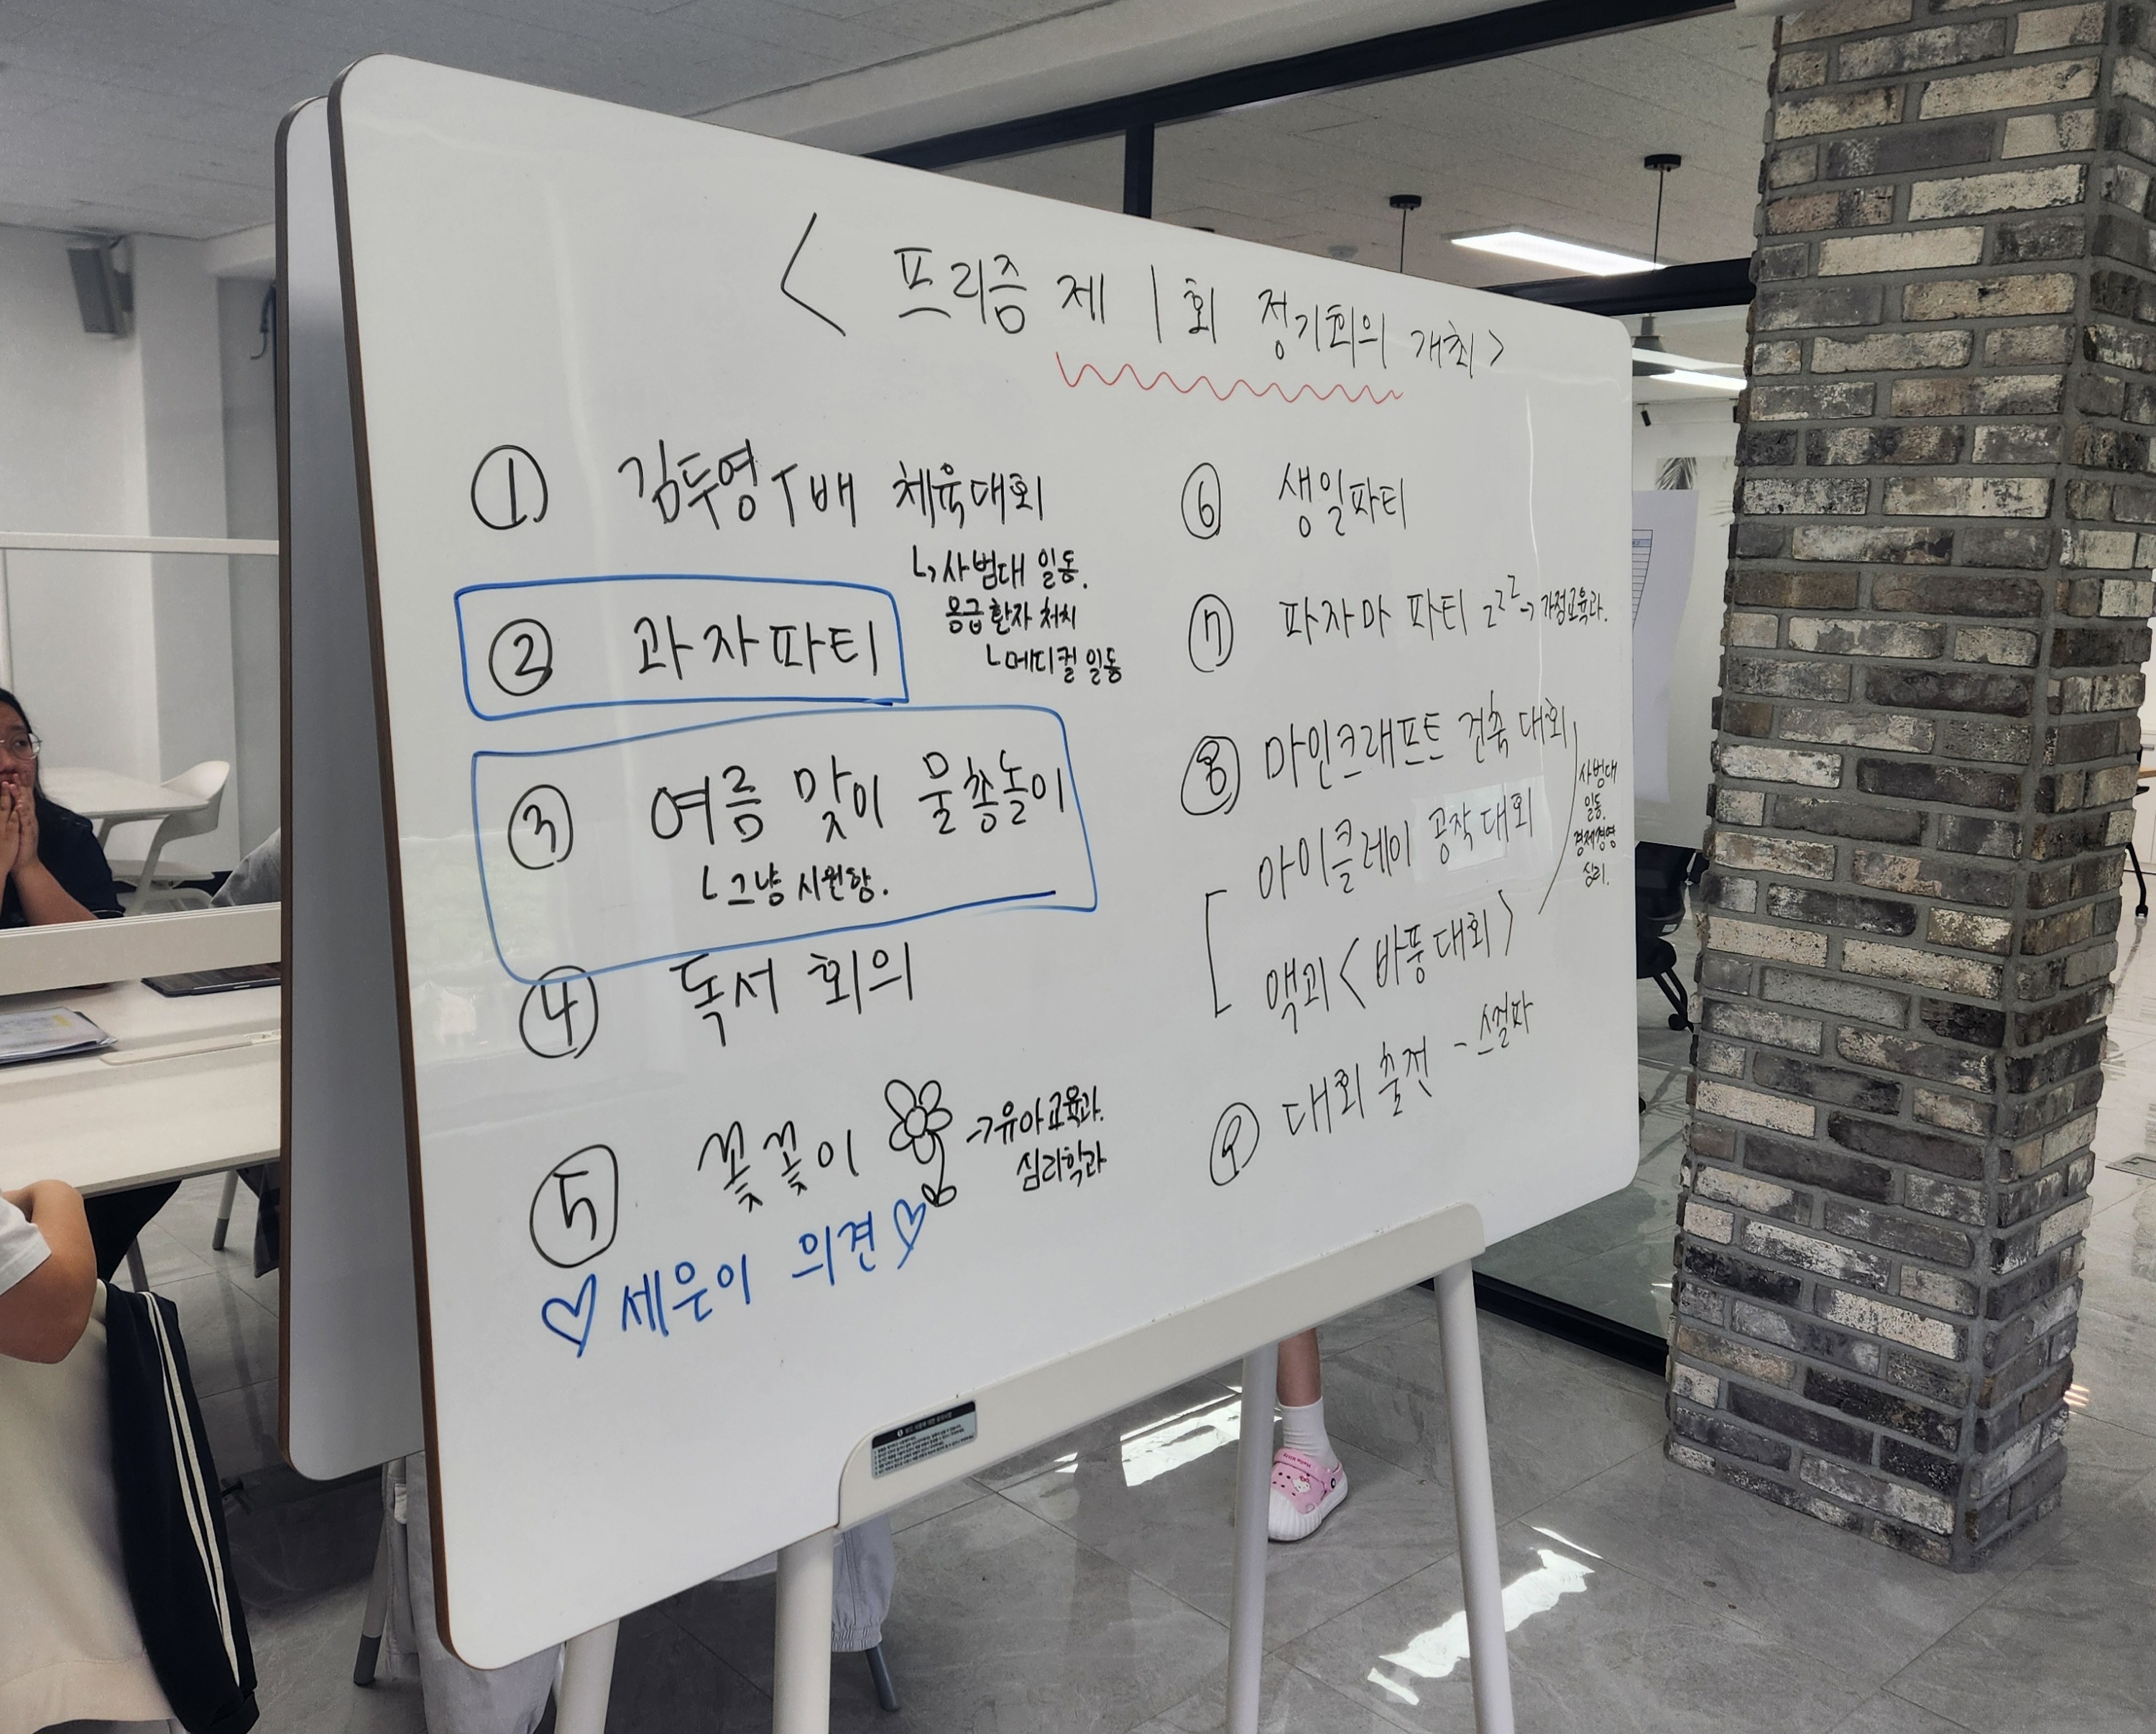 < 프리즘 제 1회 정기회의 개최 >
① 김두영T배 체육대회
↳ 사범대 일동.
응급환자 처치
└ 메디컬 일동
② 과자파티
③ 여름 맞이 물총놀이
└ 그냥 시원함.
④ 독서 회의
⑤ 꽃꽂이 → 유아교육과.
심리학과
♡ 세은이 의견 ♡
⑥ 생일파티
⑦ 파자마 파티 zzz → 가정교육과.
⑧ 마인크래프트 건축 대회
아이클레이 공작 대회
액괴 < 바풍 대회 >
사범대
일동.
경제경영
심리.
⑨ 대회 출전 - 스껄파